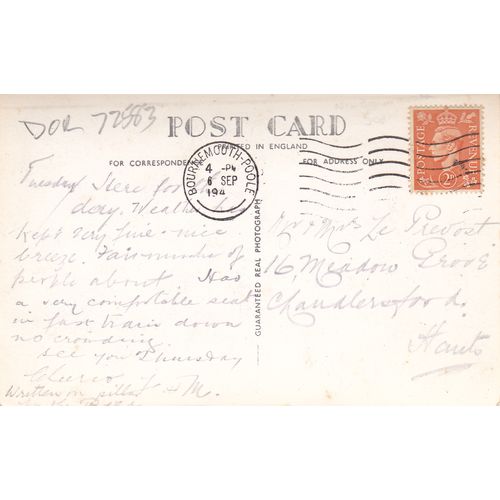 DOR 72883
POST CARD
PRINTED IN ENGLAND
FOR CORRESPONDENCE
FOR ADDRESS ONLY
BOURNEMOUTH-POOLE
4 - PM
6 SEP
194
POSTAGE
REVENUE
2D
GUARANTEED REAL PHOTOGRAPH
Tuesday Here for
day. Weather
kept very fine - nice
breeze. Fair number of
people about. Had
a very comfortable seat
in fast train down
no crowding.
See you Thursday
Cheerio
H M.
Written on
Mr & Mrs Le Prevost
16 Meadow Grove
Chandlersford.
Hants